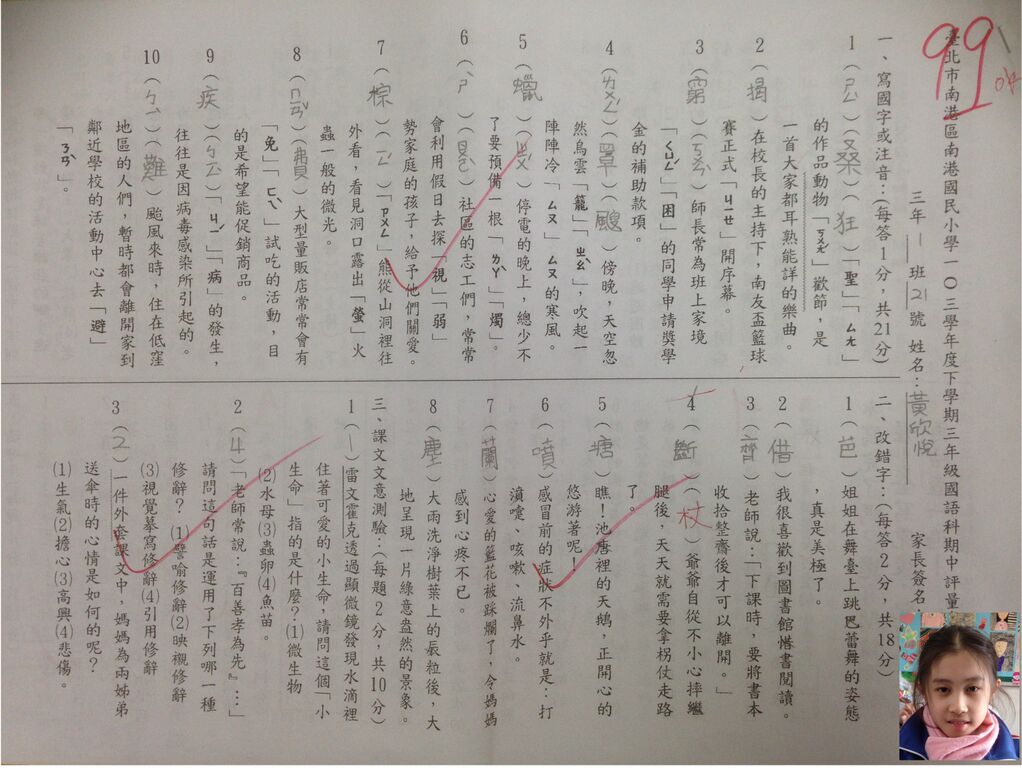 臺北市南港區南港國民小學一〇三學年度下學期三年級國語科期中評量
99
三年1班21號 姓名：黃欣悅 家長簽名
一、寫國字或注音：（每答1分，共21分）
1（ㄕㄥˋ）（桑）狂）「聖」「ㄙㄤ」
的作品動物「ㄎㄨㄤˊ」歡節，是
一首大家都耳熟能詳的樂曲。
2（揭）在校長的主持下，南友盃籃球
賽正式「ㄐㄧㄝ」開序幕。
3（窮）（ㄎㄨㄣˋ）師長常為班上家境
「ㄑㄩㄥˊ」「困」的同學申請獎學
金的補助款項。
4（ㄌㄨㄥˊ）（罩）（颼）傍晚，天空忽
然烏雲「籠」「ㄓㄠˋ」，吹起一
陣陣冷「ㄙㄡ」ㄙㄡ的寒風。
5（蠟）（ㄓㄨˊ）停電的晚上，總少不
了要預備一根「ㄌㄚˋ」「燭」。
6（ㄕˋ）（ㄖㄨㄛˋ）社區的志工們，常常
會利用假日去探「視」「弱」
勢家庭的孩子，給予他們關愛。
7（棕）（ㄧㄥˊ）「ㄗㄨㄥ」熊從山洞裡往
外看，看見洞口露出「螢」火
蟲一般的微光。
8（ㄇㄧㄢˇ）（費）大型量販店常常會有
「免」「ㄈㄟˋ」試吃的活動，目
的是希望能促銷商品。
9（疾）（ㄅㄧㄥˋ）「ㄐㄧˊ」「病」的發生，
往往是因病毒感染所引起的。
10（ㄅㄧˋ）（難）颱風來時，住在低窪
地區的人們，暫時都會離開家到
鄰近學校的活動中心去「避」
「ㄋㄢˋ」。
二、改錯字：（每答2分，共18分）
1（芭）姐姐在舞臺上跳巴蕾舞的姿態
，真是美極了。
2（借）我很喜歡到圖書館惜書閱讀。
3（齊）老師說：「下課時，要將書本
收拾整齋後才可以離開。」
4（斷）（杖）爺爺自從不小心摔繼
腿後，天天就需要拿柺仗走路
了。
5（塘）瞧！池唐裡的天鵝，正開心的
悠游著呢！
6（噴）感冒前的症狀不外乎就是：打
濆嚏、咳嗽、流鼻水。
7（蘭）心愛的籃花被踩爛了，令媽媽
感到心疼不已。
8（塵）大雨洗淨樹葉上的粒後，大
地呈現一片綠意盎然的景象。
三、課文文意測驗：（每題2分，共10分）
1（1）雷文霍克透過顯微鏡發現水滴裡
住著可愛的小生命，請問這個「小
生命」指的是什麼？⑴微生物
⑵水母⑶蟲卵⑷魚苗。
2（4）「老師常說，『百善孝為先』…」
請問這句話是運用了下列哪一種
修辭？ ⑴譬喻修辭⑵映襯修辭
⑶視覺摹寫修辭⑷引用修辭
3（2）一件外套課文中，媽媽為兩姊弟
送傘時的心情是如何的呢？
⑴生氣⑵擔心⑶高興⑷悲傷。